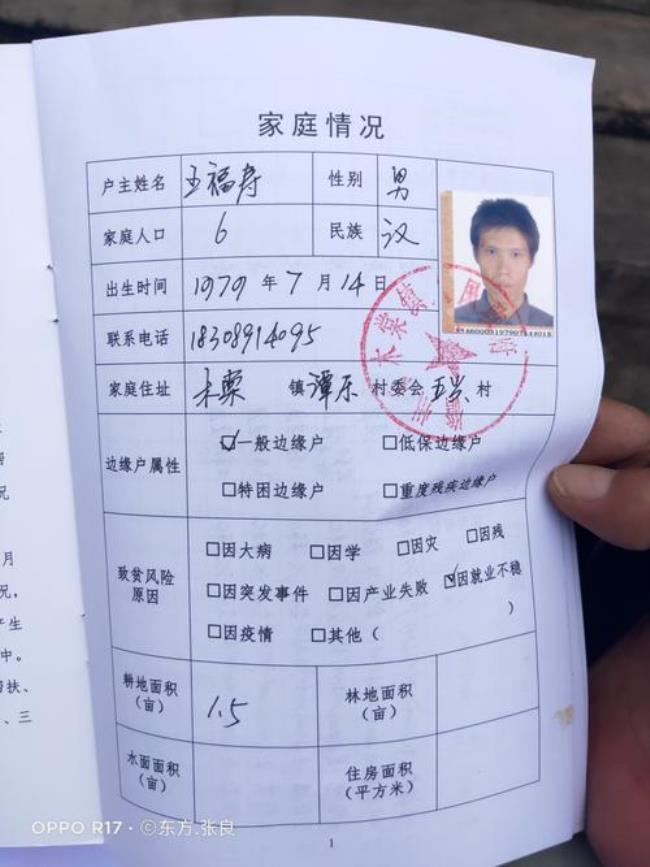 家庭情况
户主姓名 王福寿 性别 男
家庭人口 6 民族 汉
出生时间 1979 年 7 月 14 日
联系电话 18308914095
家庭住址 木棠 镇 潭乐 村委会 五兴 村
边缘户属性 ☑一般边缘户 □低保边缘户
□特困边缘户 □重度残疾边缘户
致贫风险原因 □因大病 □因学 □因灾 □因残
□因突发事件 □因产业失败 ☑因就业不稳
□因疫情 □其他（ ）
耕地面积（亩） 1.5 林地面积（亩）
水面面积（亩） 住房面积（平方米）
1
OPPO R17 · ©东方.张良